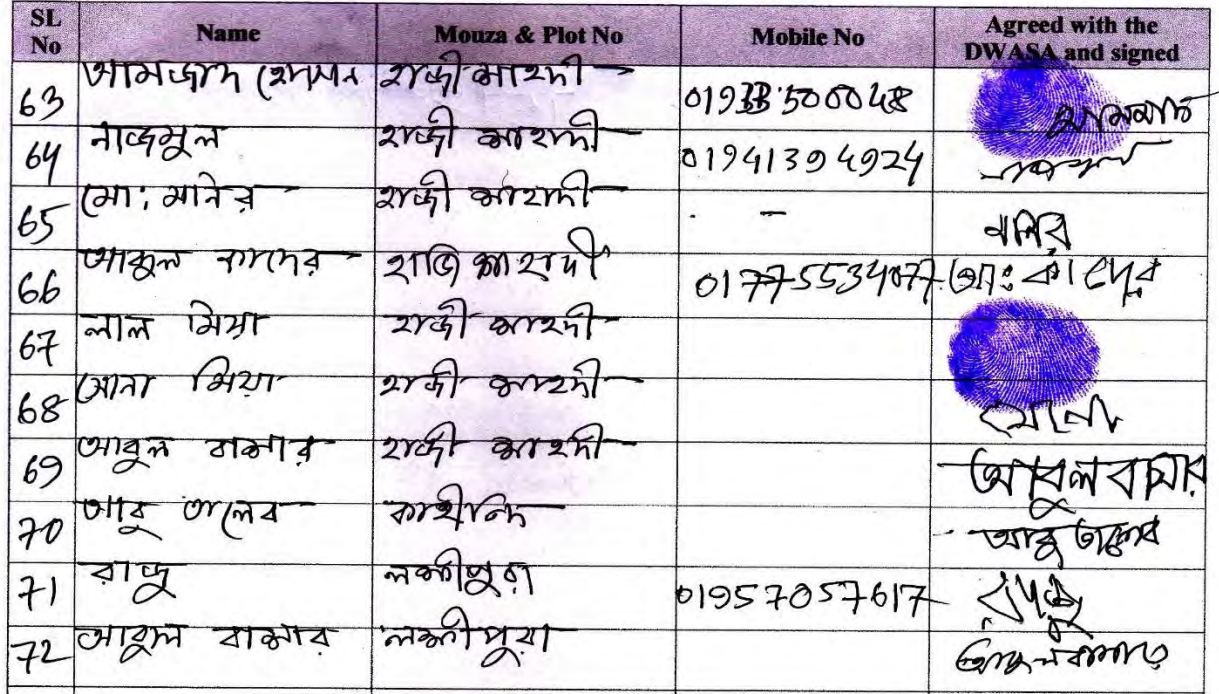 SL No | Name | Mouza & Plot No | Mobile No | Agreed with the DWASA and signed
63 | আমজাদ হোসেন | হাজী মাহদী | 01933500048 |
64 | নাজমুল | হাজী মাহদী | 01941394924 |
65 | মো: মনির | হাজী মাহদী | - | মনির
66 | আব্দুল কাদের | হাজি মাহদী | 01775534077 | আঃ কাদের
67 | লাল মিয়া | হাজী মাহদী
68 | সোনা মিয়া | হাজী মাহদী | | সোনা
69 | আবুল বাসার | হাজী মাহদী | | আবুল বাসার
70 | আবু তালেব | | | আবু তালেব
71 | রাজু | লক্ষীপুরা | 01957057617 | রাজু
72 | আবুল বাসার | লক্ষীপুরা | | আবুল বাসার